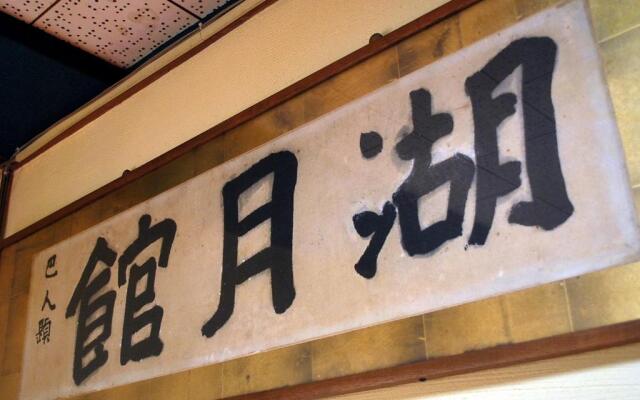 湖月館
巴人題